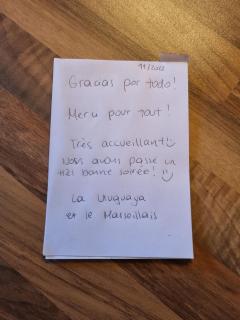 11/2022
Gracias por todo!
Merci pour tout!
Très accueillant! :)
Nous avons passé un
très bonne soirée! :)
La Uruguaya
et le Marseillais